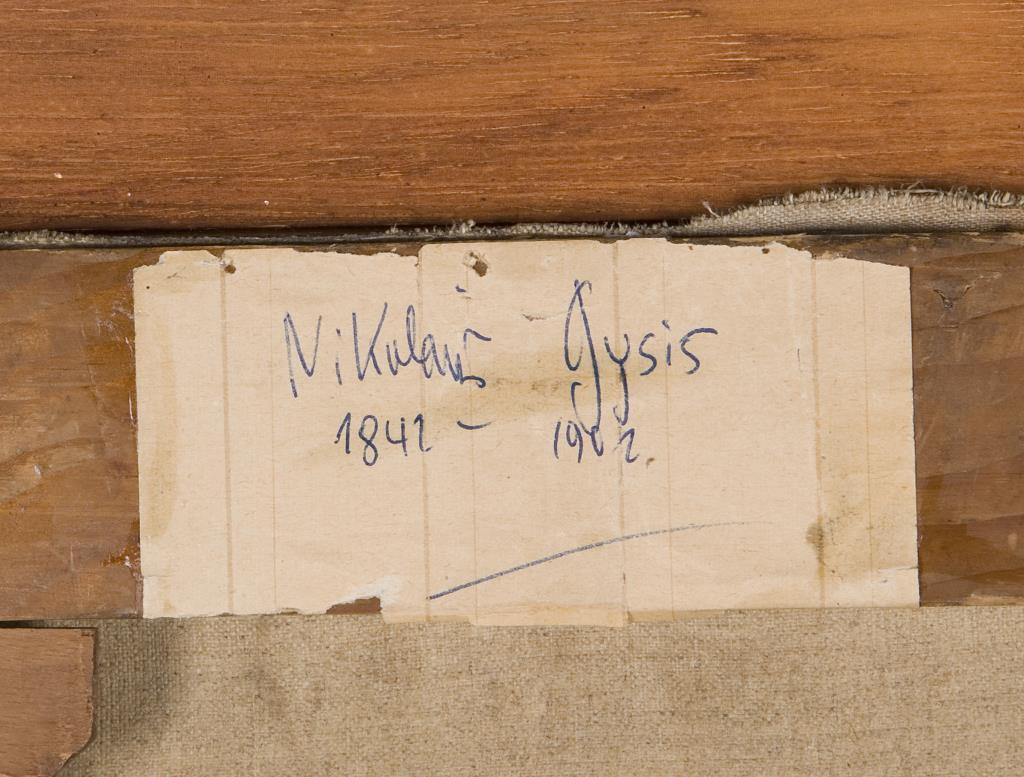 Nikolaus Gysis
1842 - 1902